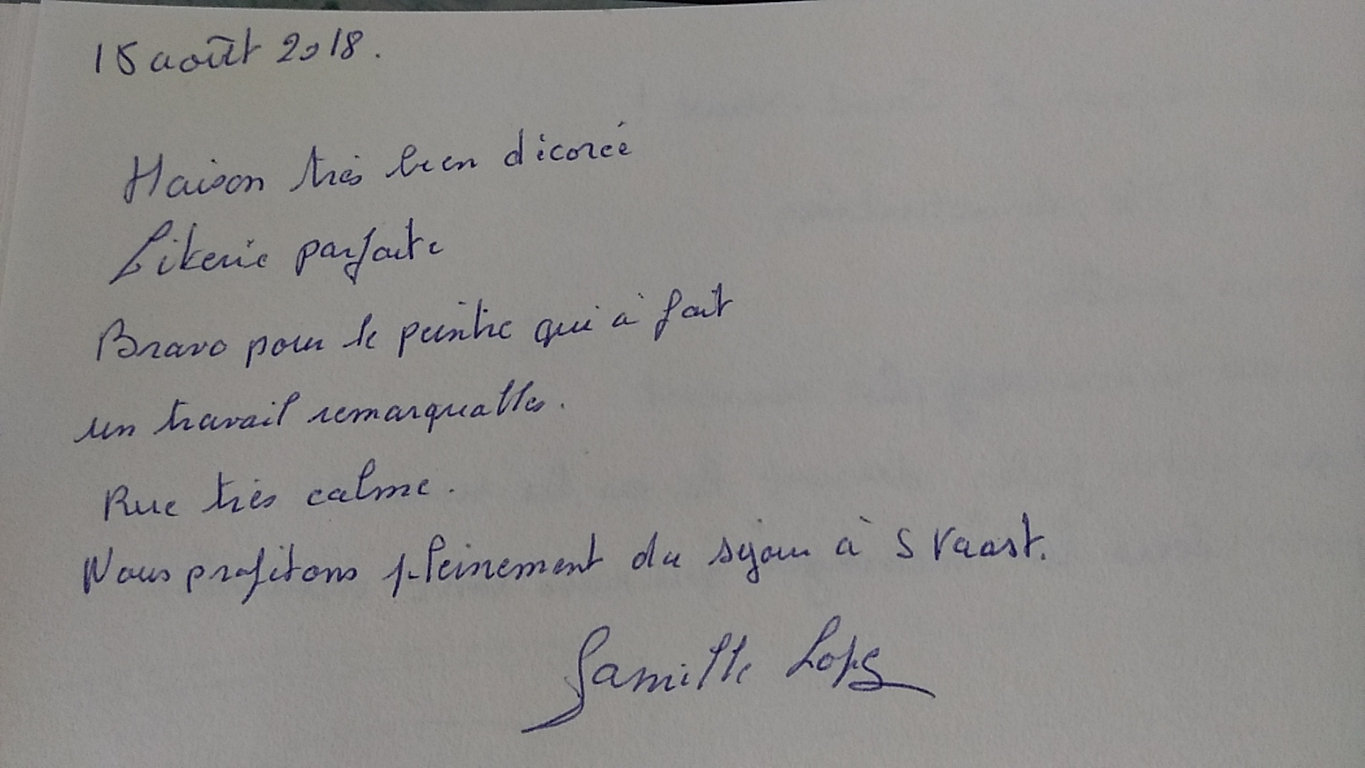 15 août 2018.
Maison très bien décorée
Literie parfaite
Bravo pour le peintre qui à fait
un travail remarquables.
Rue très calme.
Nous profitons pleinement du séjour à S Vaast.
Famille Lops